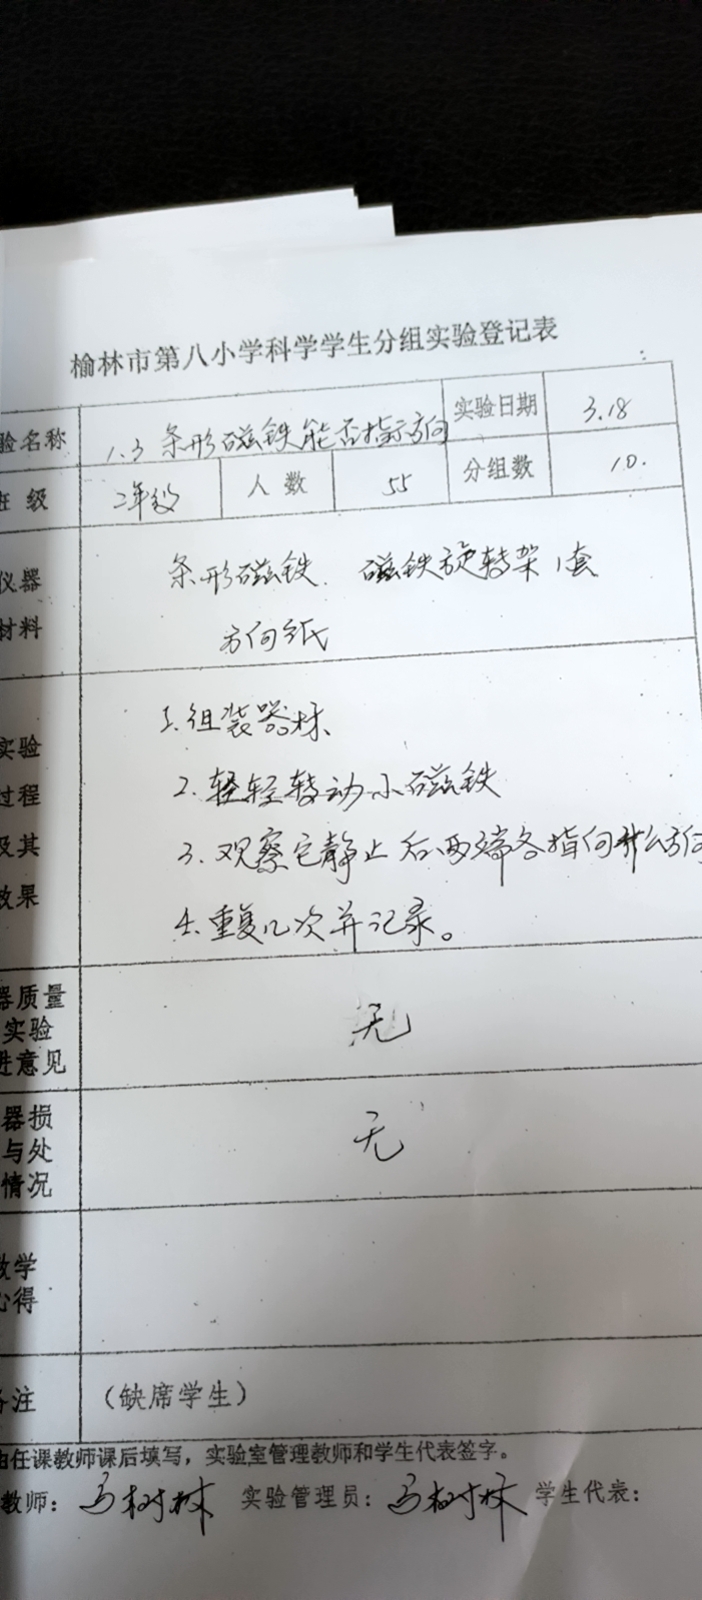 榆林市第八小学科学学生分组实验登记表
验名称 1.3 条形磁铁能否指示方向 实验日期 3.18
班 级 二年级 人 数 55 分组数 10.
仪器 条形磁铁. 磁铁旋转架1套
材料 方向纸
1.组装器材
实验
过程 2.轻轻转动小磁铁
及其 3.观察它静止后两端各指向什么方向
效果 4.重复几次并记录。
器质量
实验 无
进意见
器损
与处 无
情况
教学
心得
备注 (缺席学生)
由任课教师课后填写，实验室管理教师和学生代表签字。
教师: 马树林 实验管理员: 马树林 学生代表: